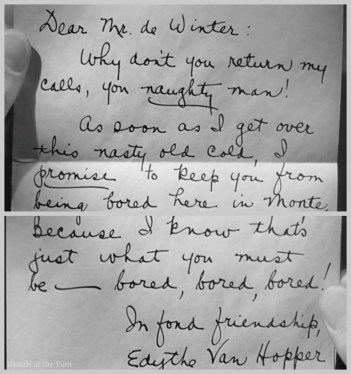 Dear Mr. de Winter:
Why don't you return my
calls, you naughty man!
As soon as I get over
this nasty old cold, I
promise to keep you from
being bored here in Monte.
Because I know that's
just what you must
be — bored, bored, bored!
In fond friendship,
Edythe Van Hopper
Blonde at the Film